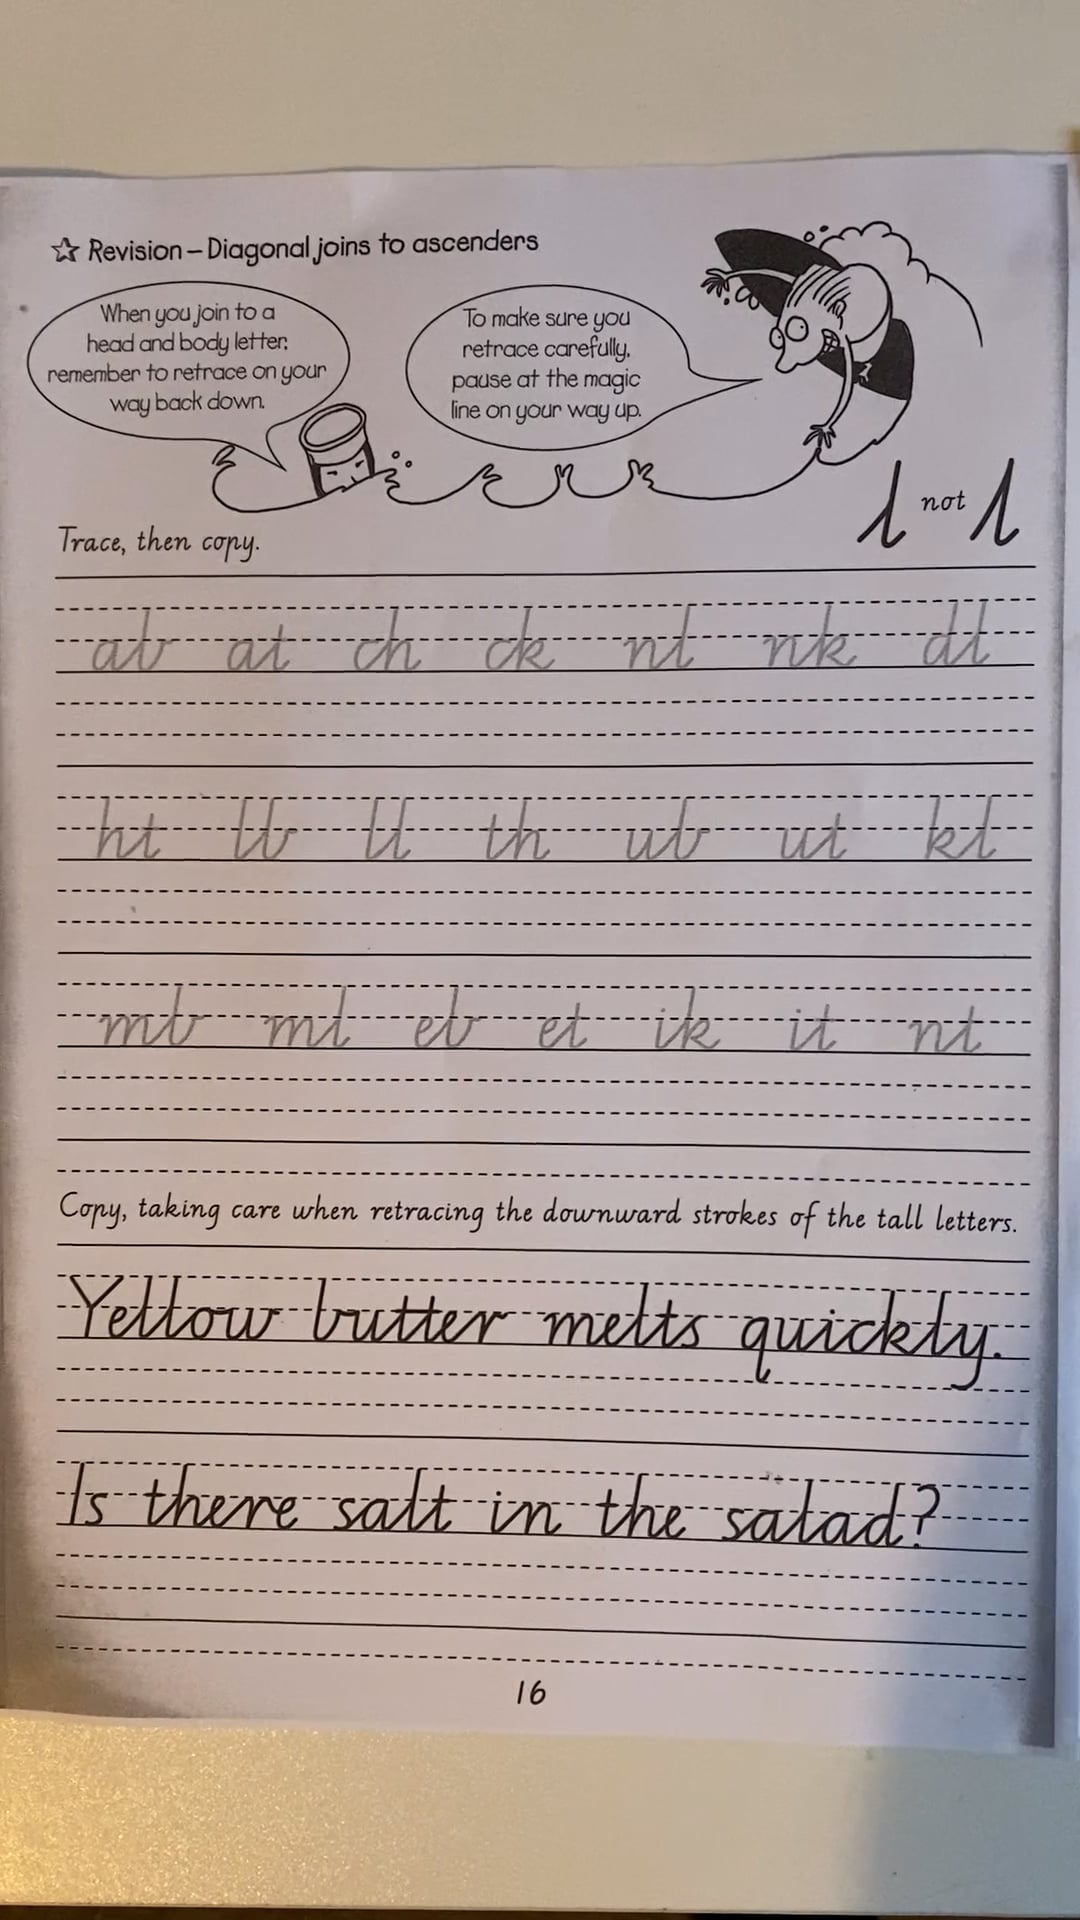 ☆ Revision – Diagonal joins to ascenders
When you join to a
head and body letter,
remember to retrace on your
way back down.
To make sure you
retrace carefully,
pause at the magic
line on your way up.
l not l
Trace, then copy.
ab at ch ck nl nk dl
ht lb ll th ub ut kl
mb ml eb et ik it nt
Copy, taking care when retracing the downward strokes of the tall letters.
Yellow butter melts quickly.
Is there salt in the salad?
16